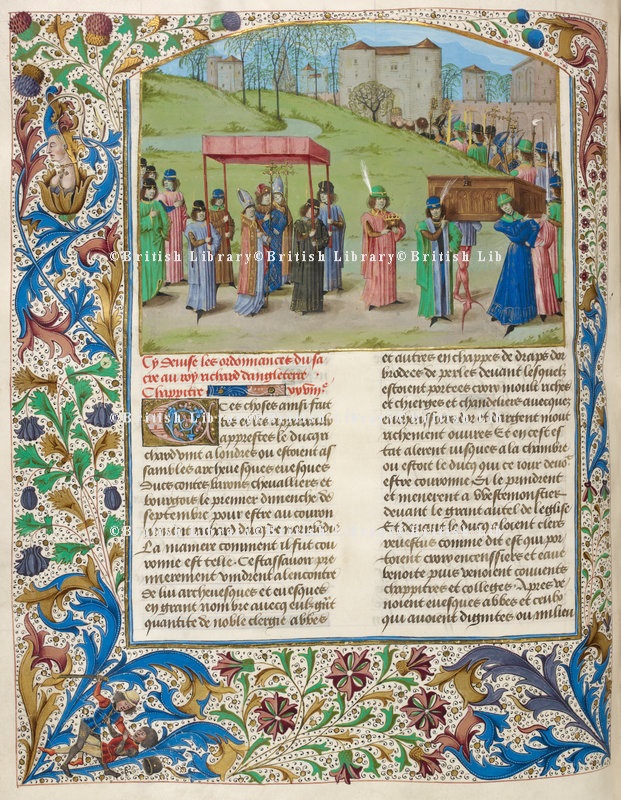 ©British Library©British Library©British Lib
Cy devise les ordonnances du sa
cre au roy richard dangleterre
Chappitre
Ces choses ainsi fait
tes et les apparaulx
aprestes le duc ri
chard vint a londres ou estoient as
sambles archevesques evesques
Ducs contes barons chevalliers et
bourgois le premier dimenche de
septembre pour estre au couron
nement richard duc de normendie
La maniere comment il fut cou
ronne est telle. Cest assavoir pre
mierement vindrent a lencontre
de lui archevesques et evesques
en grant nombre avecq eulz grant
quantite de noble clergie abbes
et autres en chappes de draps dor
brodees de perles devant lesquelz
estoient portees croix moult riches
et chierges et chandeliers avecq
encenssiers dor et dargent moult
richement ouvres Et en cest es
tat alerent jusques a la chambre
ou estoit le duc qui ce jour devoit
estre couronne Et le prindrent
et menerent a Westmonstier
devant le grant autel de leglise
Et devant le duc aloient clers
revestus comme dit est qui por
toient croix encenssiers et eaue
benoite puis venoient couvents
chappitres et colleges. Apres ve
noient evesques abbes et ceulx
qui avoient dignites ou milieu